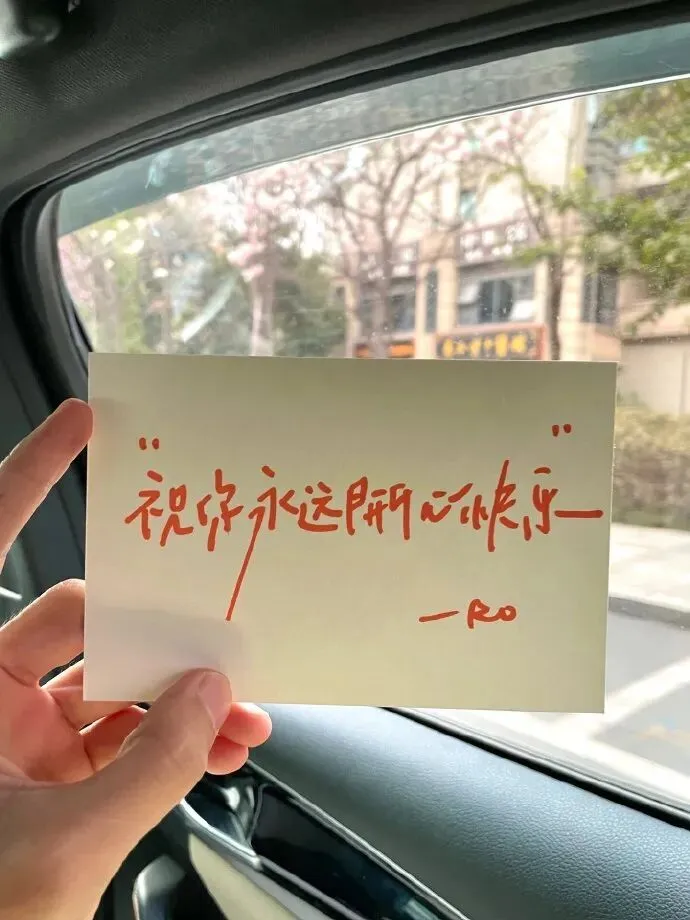 "祝你永远开心快乐
"
—RO